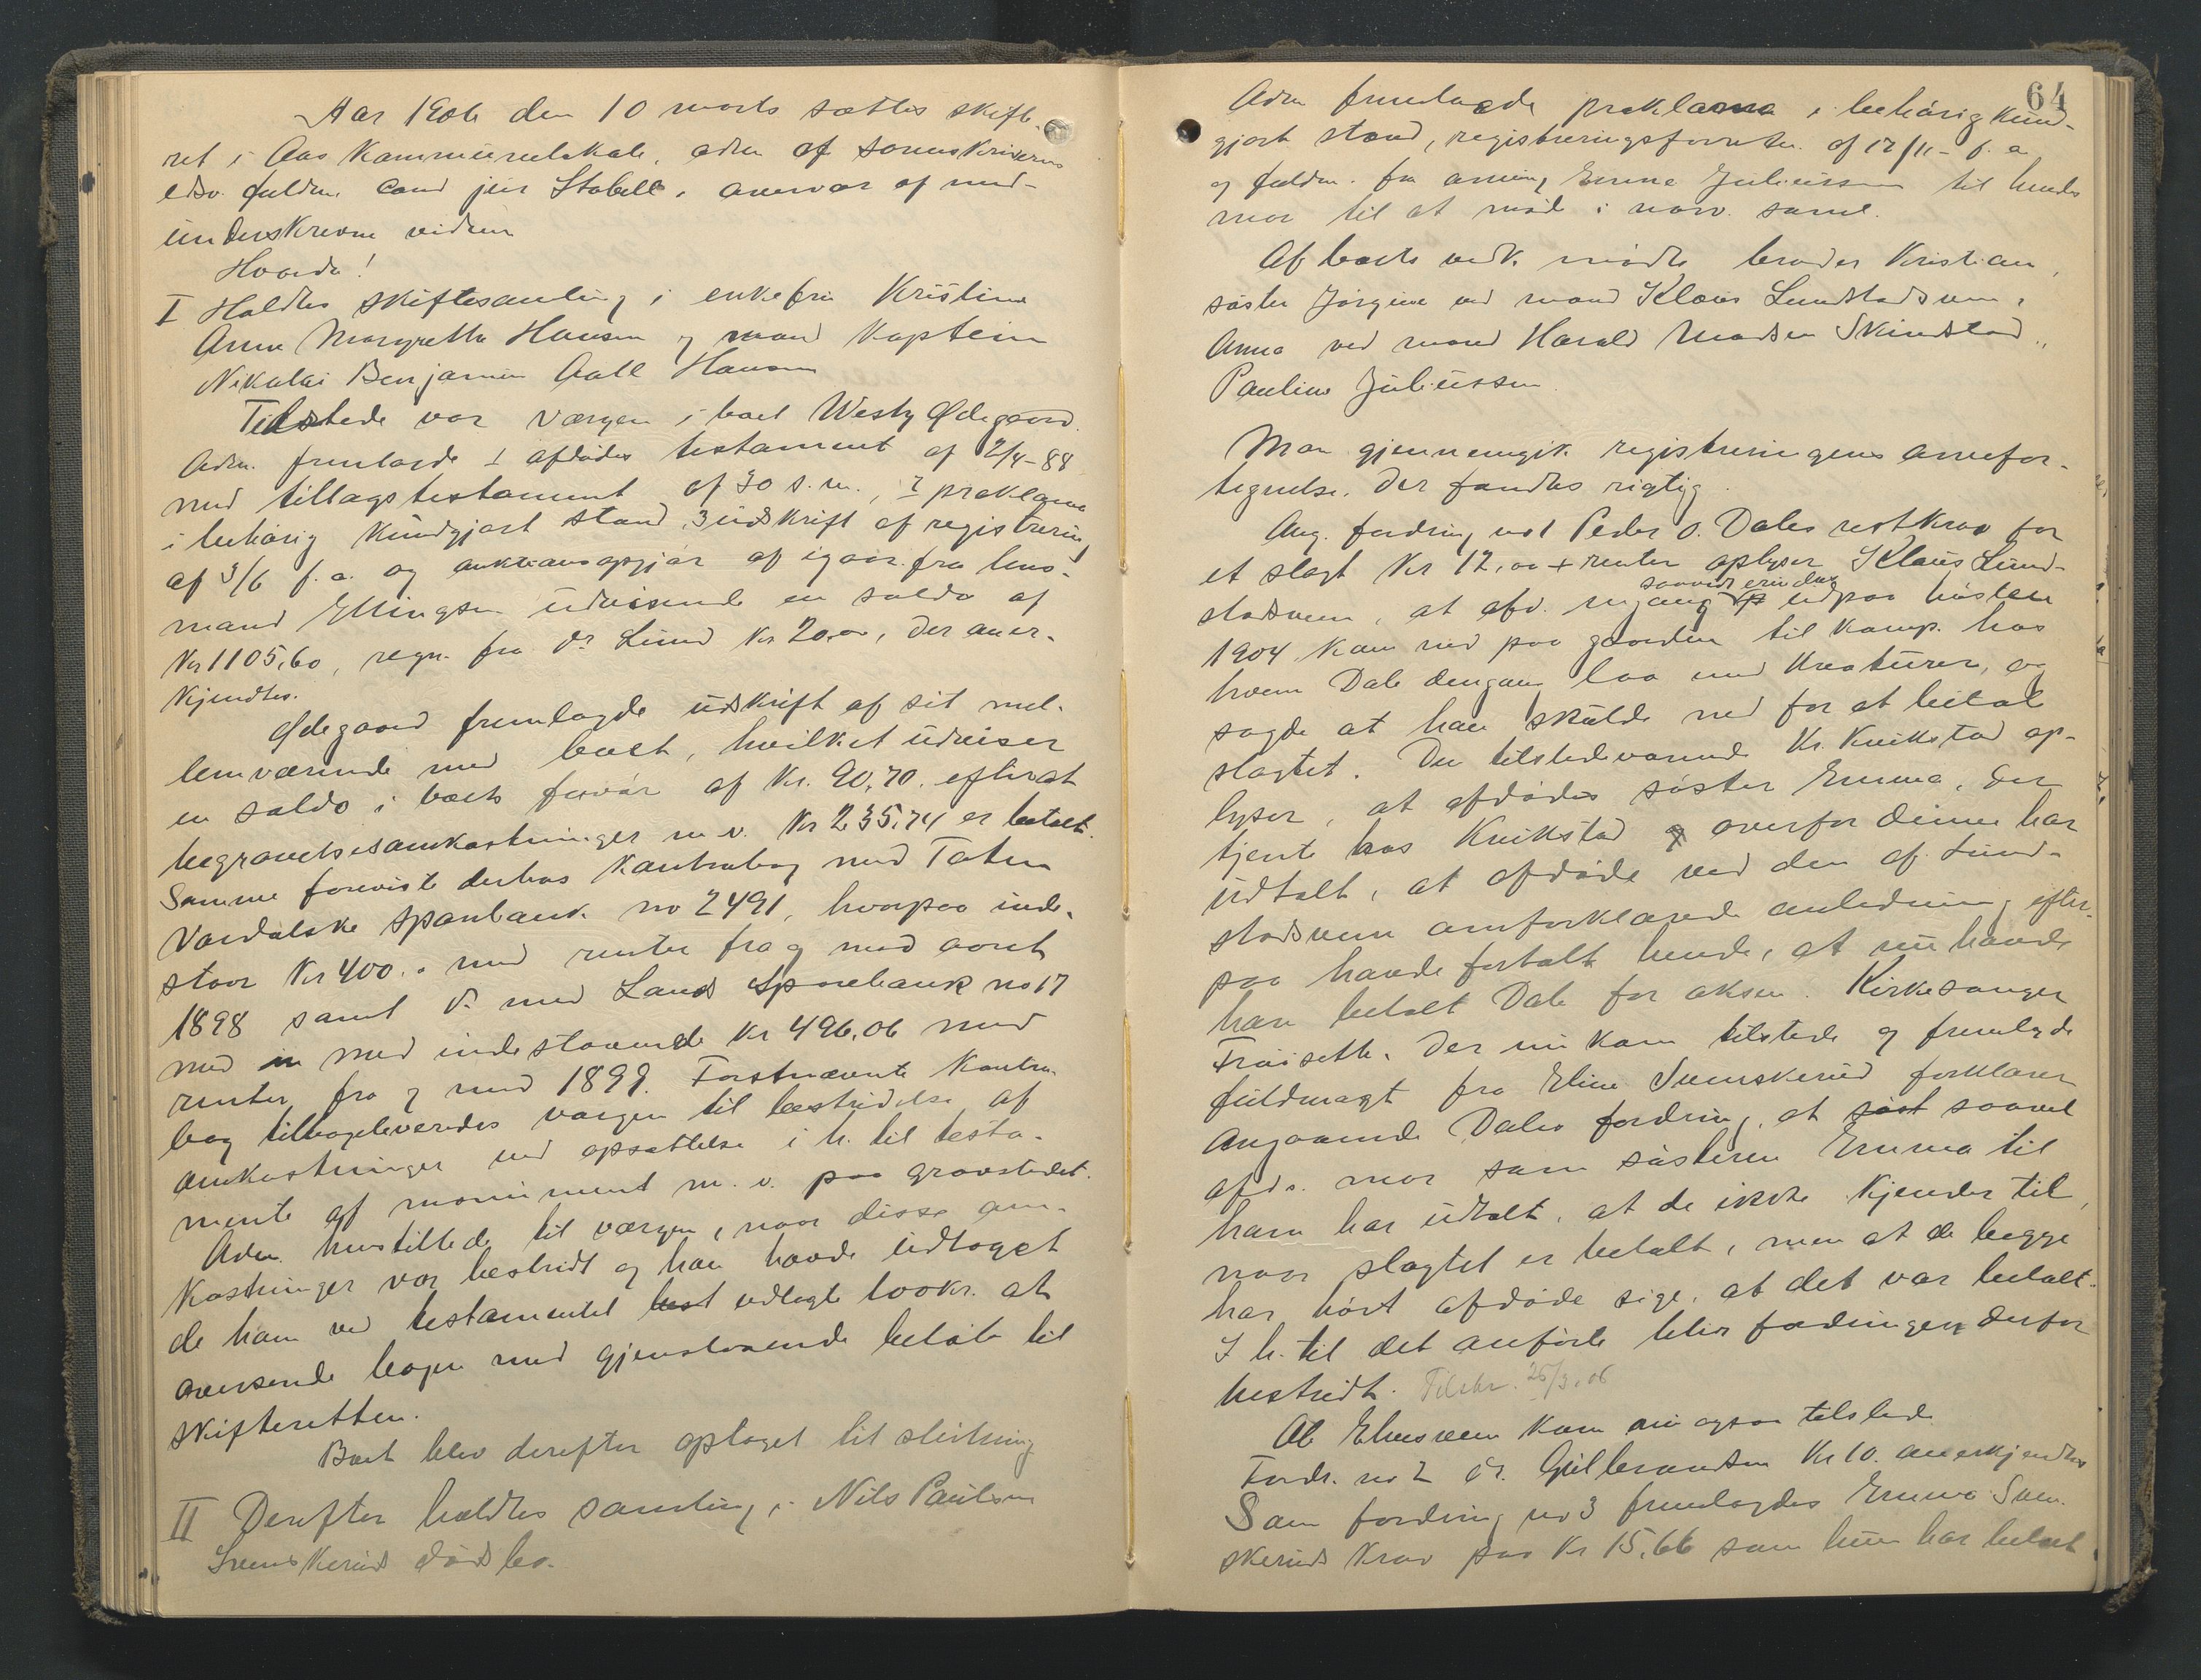 Aar 1906 den 10 marts sattes skifte-
ret i Aas kommunelokale, adm af sorenskriverens
edsv. fuldm. cand jur Stabell i overvær af med-
underskrevne vidner
Hvorda!
I Holdtes skiftesamling i enkefru Kristine
Anna Margrethe Hansen og mand kaptein
Nikolai Benjamin Aall Hansen
Tilstede var værgen i boet Westy Ødegaard.
Adm. fremlagde 1 afdødes testament af 2/4-88
med tillægstestament af 30 s.m., 2 proklama
i behørig kundgjort stand, 3 udskrift af registrering
af 3/6 f.a. og auktionsopgjør af igaar fra lens-
mand Ellingsen udvisende en saldo af
Kr 1105,60, regn. fra dr Lund Kr 20,00, der aner-
kjendtes.
Ødegaard fremlagde udskrift af sit mel-
lemværende med boet, hvilket udviser
en saldo i boets favør af Kr. 90,70. efterat
begravelsesomkostninger m.v. Kr 235,74 er betalt.
Samme foreviste derhos kontrabog med Toten
Vardalske Sparebank no 2491, hvorpaa inde-
staar Kr 400.- med renter fra og med aaret
1898 samt do med Lands Sparebank no 17
med indestaaende Kr 496,06 med
renter fra og med 1899. Førstnævnte kontra
bog tilbageleveredes værgen til bestridelse af
omkostninger ved opsættelse i h. til testa-
mente af monument m.v. paa gravstedet.
Adm. henstillede til værgen, naar disse om-
kostninger var bestridt og han havde udtaget
de ham ved testamentet udlagte 100 kr. at
oversende bogen med gjenstaaende beløb til
skifteretten.
Boet blev derefter optaget til slutning
II Derefter holdtes samling i Nils Paulsen
Svenskeruds dødsbo.
64
Adm fremlagde proklama i behørig kund-
gjort stand, registreringsforretn. af 17/11 - f. a
og fuldm. fra arving Emma Juliussen til hendes
mor til at møde i nærv. saml.
Af boets vedk. mødte broder Kristian,
søster Jørgine ved mand Klaus Lundstadsveen,
Anna ved mand Harald Madsen Skindstad,
Pauline Juliussen
Man gjennemgik registreringens arvefor-
tegnelse, der fandtes rigtig.
Ang. fordring no 1 Peder O. Dales restkrav for
et slagt Kr 12,00 + renter oplyser Klaus Lund-
stadsveen, at afd. engang saavidt erindres udpaa høsten
1904 kom ned paa gaarden til Kamp. hos
hvem Dale dengang laa med kreaturer, og
sagde at han skulde ned for at betale
slagtet. Den tilstedeværende Kr. Kvikstad op-
lyser, at afdødes søster Emma, der
tjente hos Kvikstad overfor denne har
udtalt, at afdøde ved den af Lund-
stadsveen omforklarede anledning efter-
paa havde fortalt hende, at nu havde
han betalt Dale for oksen. Kirkesanger
Frøiseth, der nu kom tilstede og fremlagde
fuldmagt fra Eline Svenskerud forklarer
angaaende Dales fordring, at saavel
afds. mor som søsteren Emma til
ham har udtalt, at de ikke kjender til,
naar slagtet er betalt, men at de begge
har hørt afdøde sige, at det var betalt.
I h. til det anførte blir fordringen derfor
bestridt. Tilskr. 26/3.06
Ole Elvesveen kom nu ogsaa tilstede
Fordr. no 2 dr. Gulbrandsen Kr 10. anerkjendtes
Som fordring no 3 fremlagdes Emma Sven-
skeruds krav paa Kr 15,66 som hun har betalt